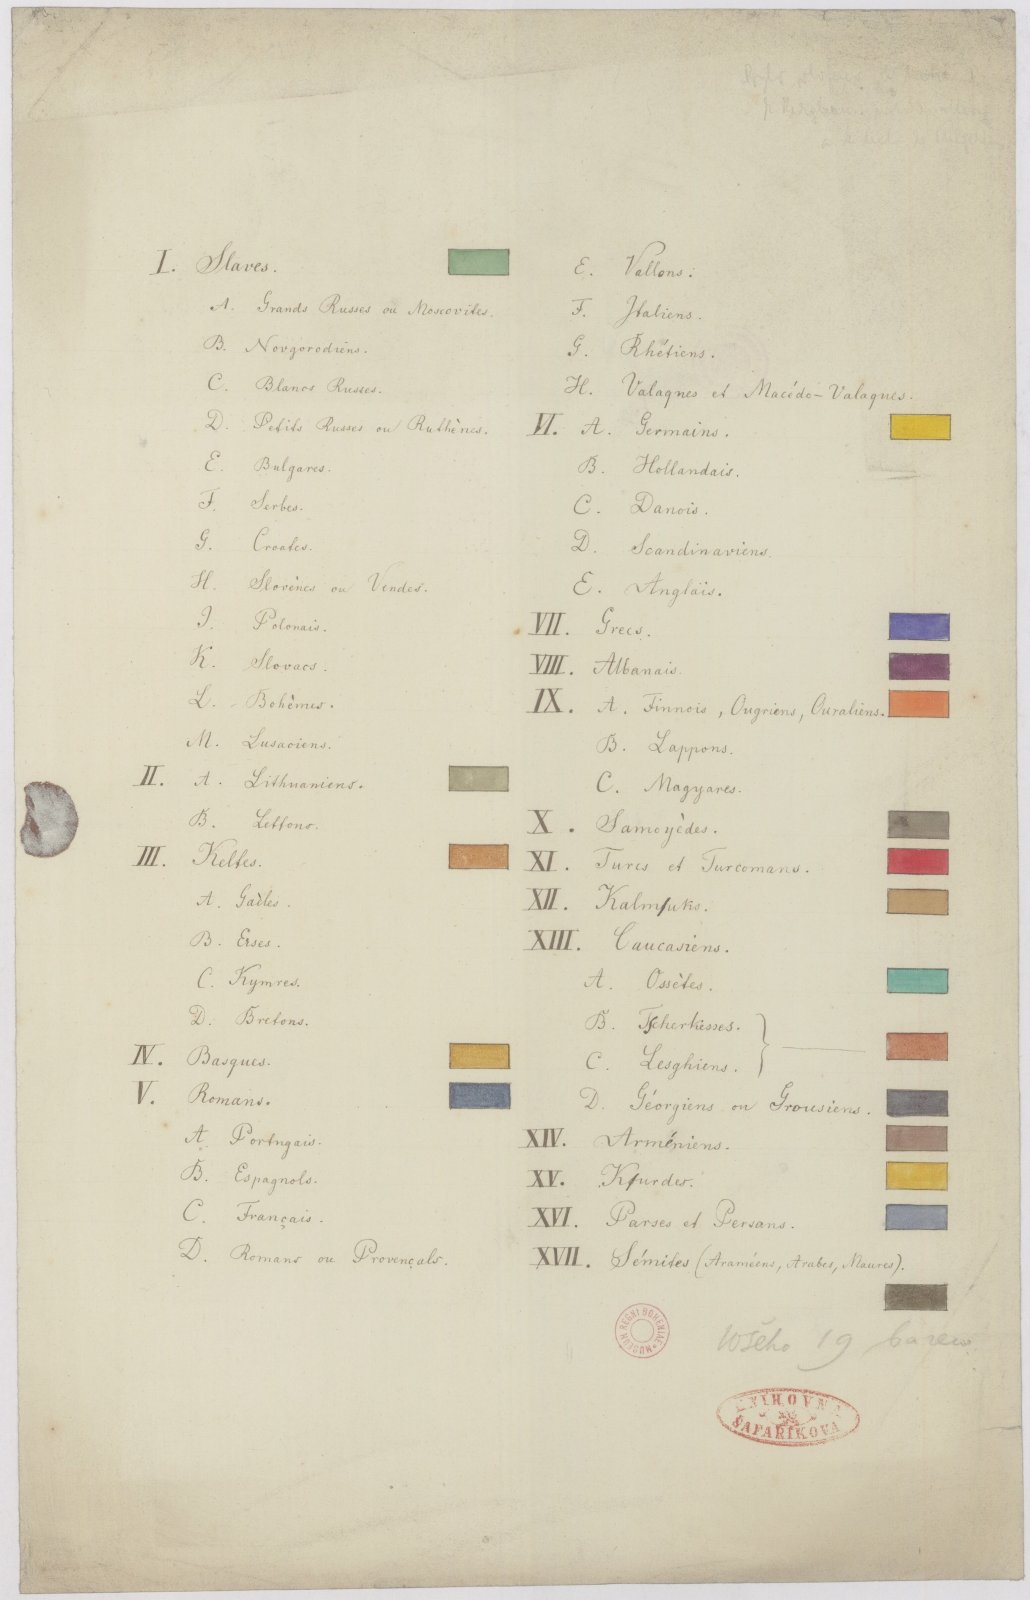 I. Slaves.
A. Grands Russes ou Moscovites.
B. Novgorodiens.
C. Blancs Russes.
D. Petits Russes ou Ruthènes.
E. Bulgares.
F. Serbes.
G. Croates.
H. Slovènes ou Vendes.
J. Polonais.
K. Slovacs.
L. Bohêmes.
M. Lusaciens.
II. A. Lithuaniens.
B. Lettons.
III. Keltes.
A. Gaëles.
B. Erses.
C. Kymres.
D. Bretons.
IV. Basques.
V. Romans.
A. Portugais.
B. Espagnols.
C. Français.
D. Romans ou Provençals.
E. Vallons.
F. Italiens.
G. Rhétiens.
H. Valaques et Macédo-Valaques.
VI. A. Germains.
B. Hollandais.
C. Danois.
D. Scandinaviens.
E. Anglais.
VII. Grecs.
VIII. Albanais.
IX. A. Finnois, Ougriens, Ouraliens.
B. Lappons.
C. Magyares.
X. Samoyèdes.
XI. Turcs et Turcomans.
XII. Kalmuks.
XIII. Caucasiens.
A. Ossètes.
B. Tscherkesses.
C. Lesghiens.
D. Géorgiens ou Grousiens.
XIV. Arméniens.
XV. Kurdes.
XVI. Parses et Persans.
XVII. Sémites (Araméens, Arabes, Maures).
MUSEUM REGNI BOHEMIAE
Wšeho 19 barew
KNIHOVNA
ŠAFAŘÍKOVA